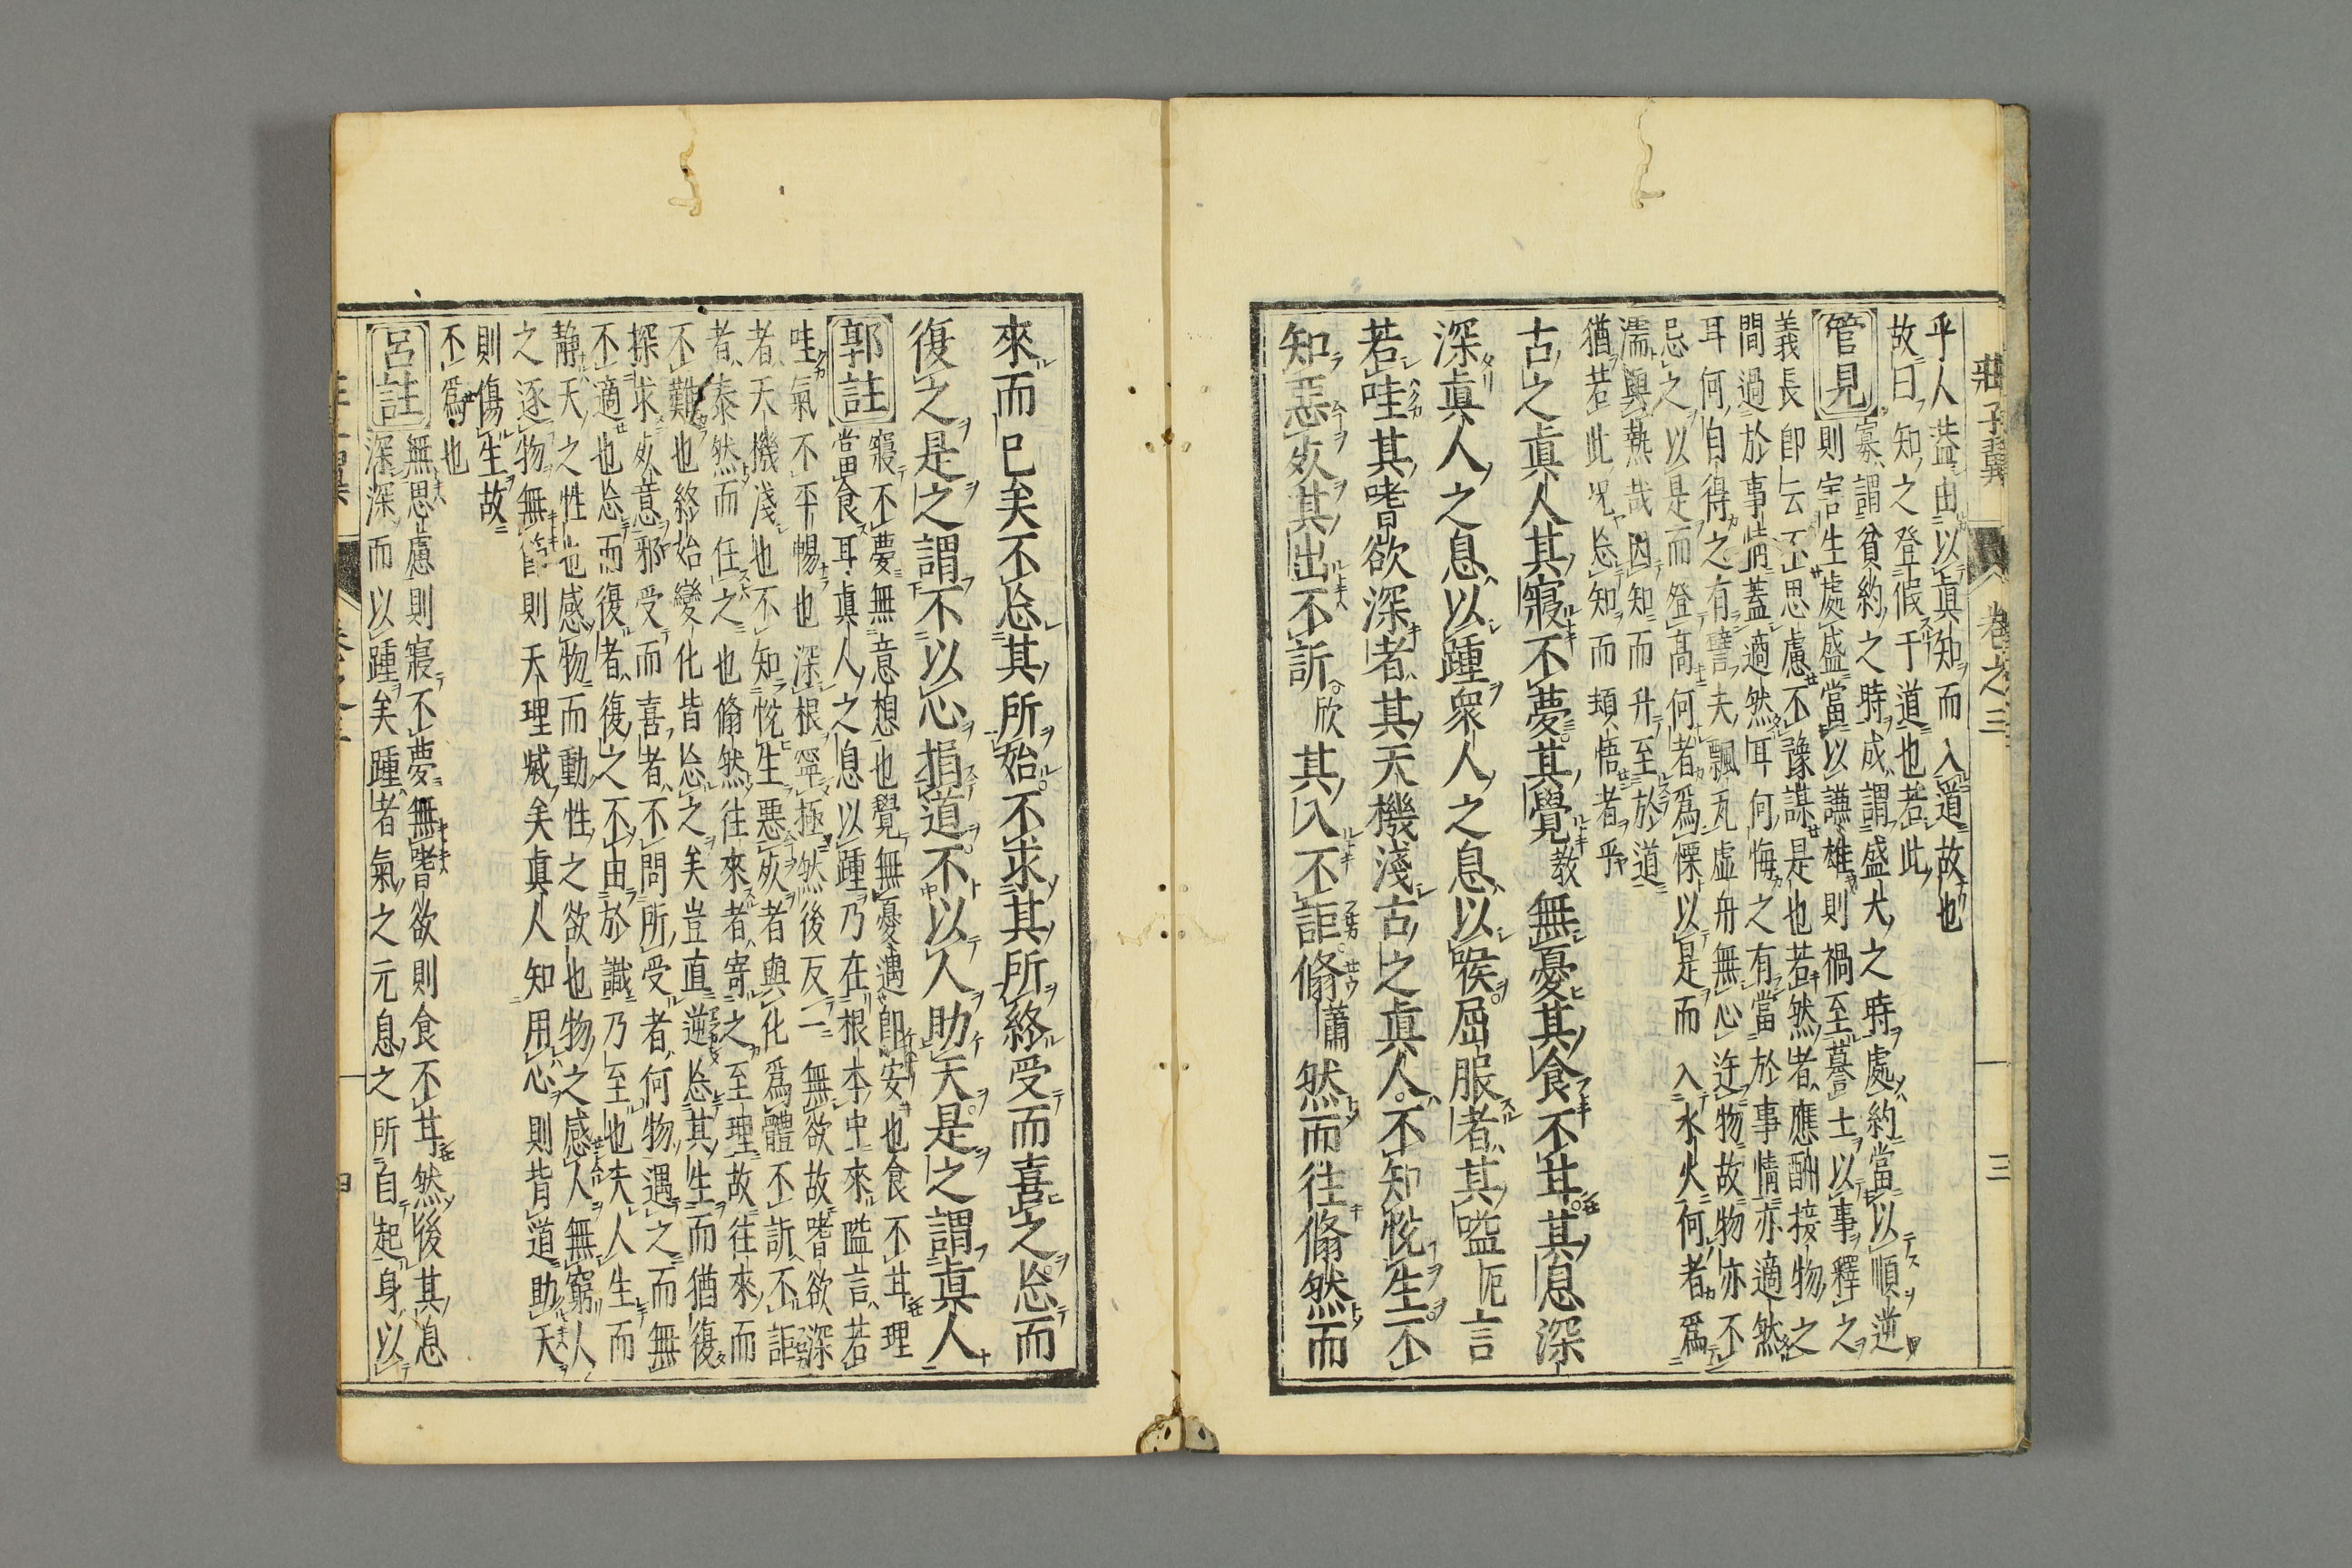 莊子翼 卷之三 三
乎人蓋由以眞知而入道故也
故曰知之登假于道也若此
管見 寡謂貧約之時成謂盛大之時處約當以順逆
則害生處盛當以謙雄則禍至謩士以事釋之
義長卽云不思慮不豫謀是也若然者應酬接物之
間過於事情蓋適然耳何悔之有當於事情亦適然
耳何自得之有譬夫飄瓦虛舟無心迕物故物亦不
忌之以是而登高何者爲慄以是而入水火何者爲
濡與熱哉因知而升至於道
猶若此况忘知而頓悟者乎
古之眞人其寢不夢其覺敎無憂其食不甘其息深
深眞人之息以踵衆人之息以喉屈服者其嗌戹言
若哇其嗜欲深者其天機淺古之眞人不知悅生不
知惡死其出不訢欣其入不詎翛蕭然而往翛然而
來而已矣不忘其所始不求其所終受而喜之忘而
復之是之謂不以心捐道不以人助天是之謂眞人
郭註 寢不夢無意想也覺無憂遇卽安也食不甘理
當食耳眞人之息以踵乃在根本中來嗌言若
哇氣不平暢也深根寧極然後反一無欲故嗜欲深
者天機淺也不知悅生惡死者與化爲體不訢不詎
者泰然而任之也翛然往來者寄之至理故往來而
不難也終始變化皆忘之矣豈直逆忘其生而猶復
探求死意邪受而喜者不問所受者何物遇之而無
不適也忘而復者復之不由於識乃至也夫人生而
靜天之性也感物而動性之欲也物之感人無窮人
之逐物無節則天理滅矣眞人知用心則背道助天
則傷生故
不爲也
呂註 無思慮則寢不夢無嗜欲則食不甘然後其息
深深而以踵矣踵者氣之元息之所自起身以
四